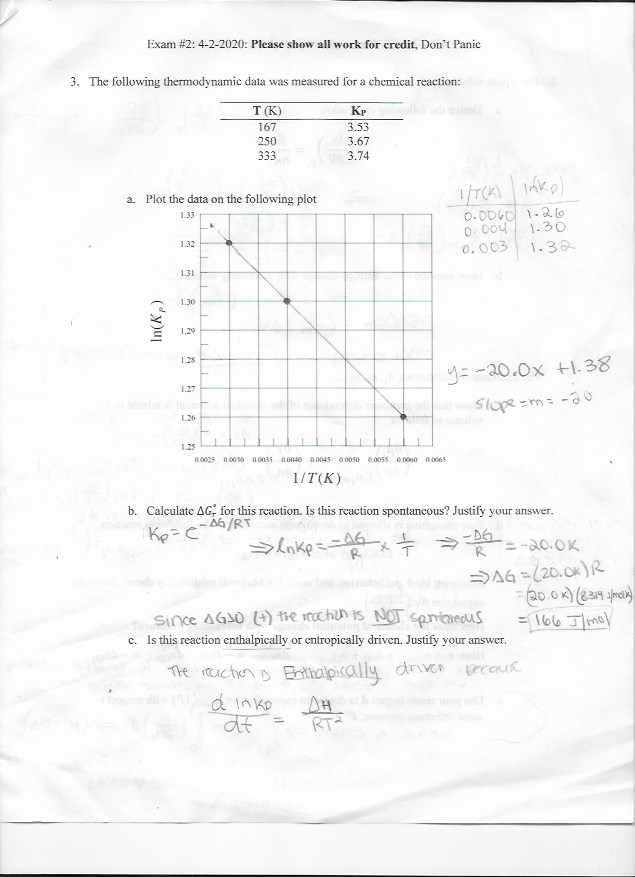 Exam #2: 4-2-2020: Please show all work for credit, Don't Panic
3. The following thermodynamic data was measured for a chemical reaction:
T (K) KP
167 3.53
250 3.67
333 3.74
a. Plot the data on the following plot
1/T(K) ln(Kp)
0.0060 1.26
0.004 1.30
0.003 1.32
1.33
1.32
1.31
1.30
1.29
1.28
1.27
1.26
1.25
ln(Kp)
0.0025 0.0030 0.0035 0.0040 0.0045 0.0050 0.0055 0.0060 0.0065
1/T(K)
y = -20.0x + 1.38
slope = m = -20
b. Calculate ΔG°T for this reaction. Is this reaction spontaneous? Justify your answer.
Kp = e^-ΔG/RT
⇒ lnKp = -ΔG/R × 1/T ⇒ -DG/R = -20.0K
⇒ ΔG = (20.0K) R
= (20.0 K) (8.314 J/molK)
= 166 J/mol
Since ΔG>0 (+) the reaction is NOT spontaneous
c. Is this reaction enthalpically or entropically driven. Justify your answer.
The reaction is Enthalpically driven because
d lnKp/dt = ΔH/RT²